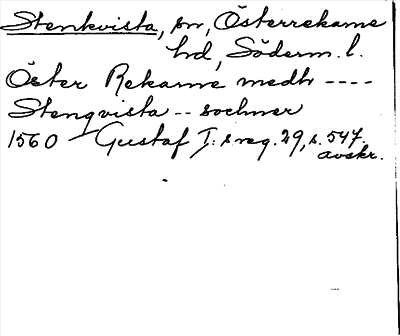 Stenkvista, sn, Österrekarne
hd, Söderm. l.
Öster Rekarne medh ----
Stenqvista -- sochner
1560 Gustaf I: s reg. 29, s. 547.
avskr.